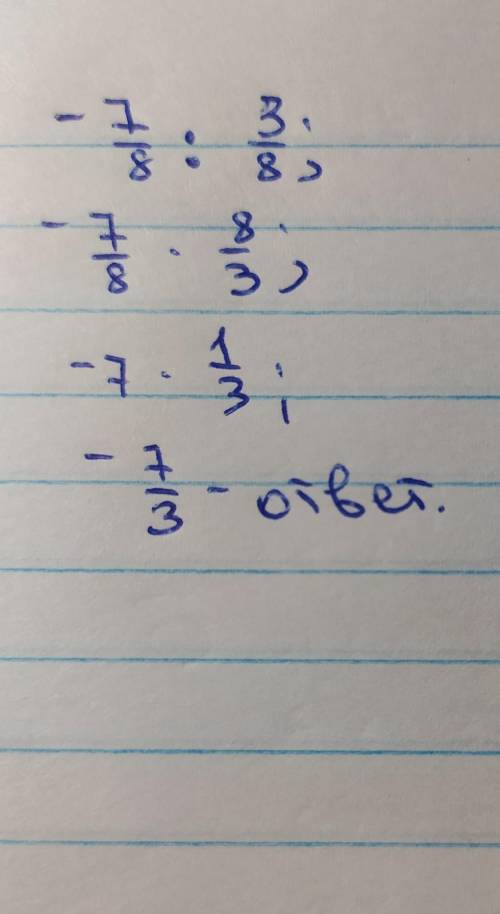 - 7/8 : 3/8;
- 7/8 · 8/3;
-7 · 1/3;
- 7/3 - ответ.